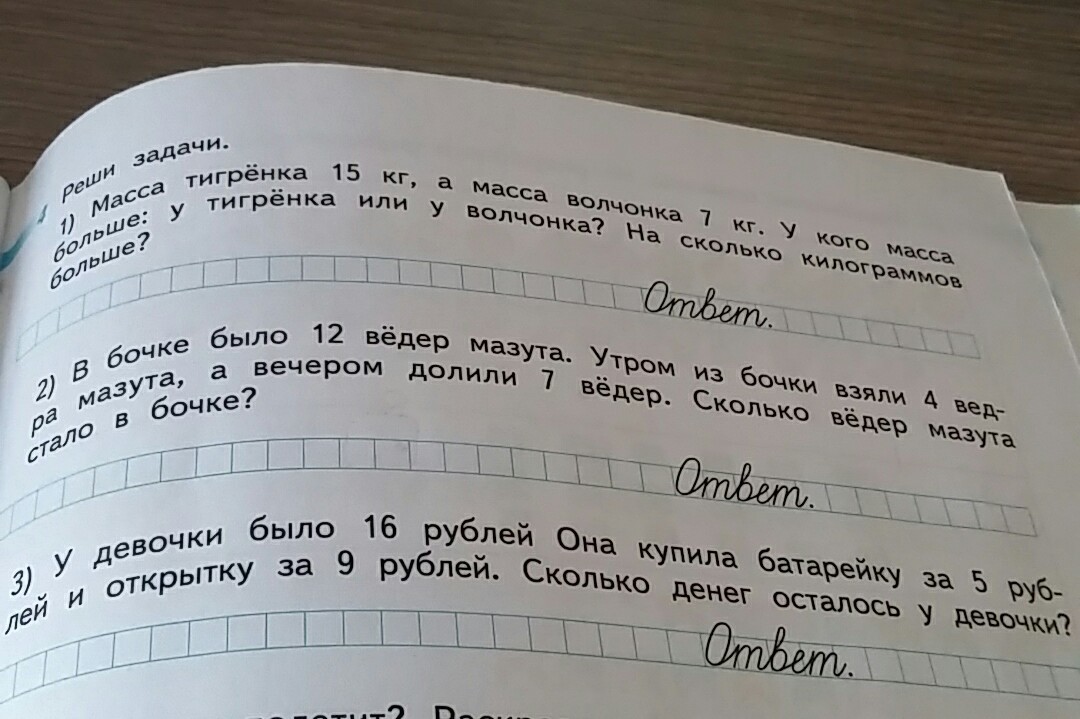 Реши задачи.
1) Масса тигрёнка 15 кг, а масса волчонка 7 кг. У кого масса
больше: у тигрёнка или у волчонка? На сколько килограммов
больше?
Ответ.
2) В бочке было 12 вёдер мазута. Утром из бочки взяли 4 вед-
ра мазута, а вечером долили 7 вёдер. Сколько вёдер мазута
стало в бочке?
Ответ.
3) У девочки было 16 рублей Она купила батарейку за 5 руб-
лей и открытку за 9 рублей. Сколько денег осталось у девочки?
Ответ.